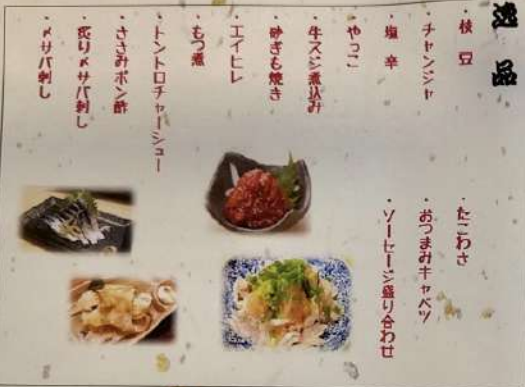 逸品
・枝豆
・チャンジャ
・塩辛
・やっこ
・牛スジ煮込み
・砂ぎも焼き
・エイヒレ
・もつ煮
・トントロチャーシュー
・ささみポン酢
・炙り〆サバ刺し
・〆サバ刺し
・たこわさ
・おつまみキャベツ
・ソーセージ盛り合わせ